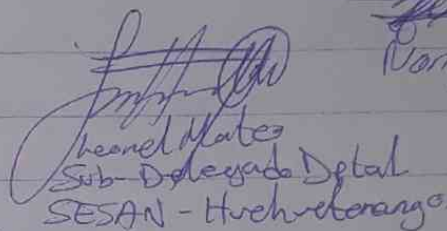 Nor
Leonel Mateo
Sub-Delegado Dptal
SESAN - Huehuetenango.